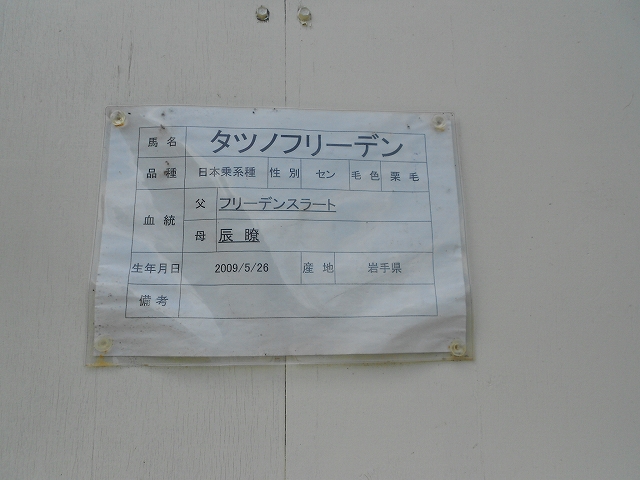 馬名 タツノフリーデン
品種 日本乗系種 性別 セン 毛色 栗毛
血統 父 フリーデンスラート
母 辰瞭
生年月日 2009/5/26 産地 岩手県
備考